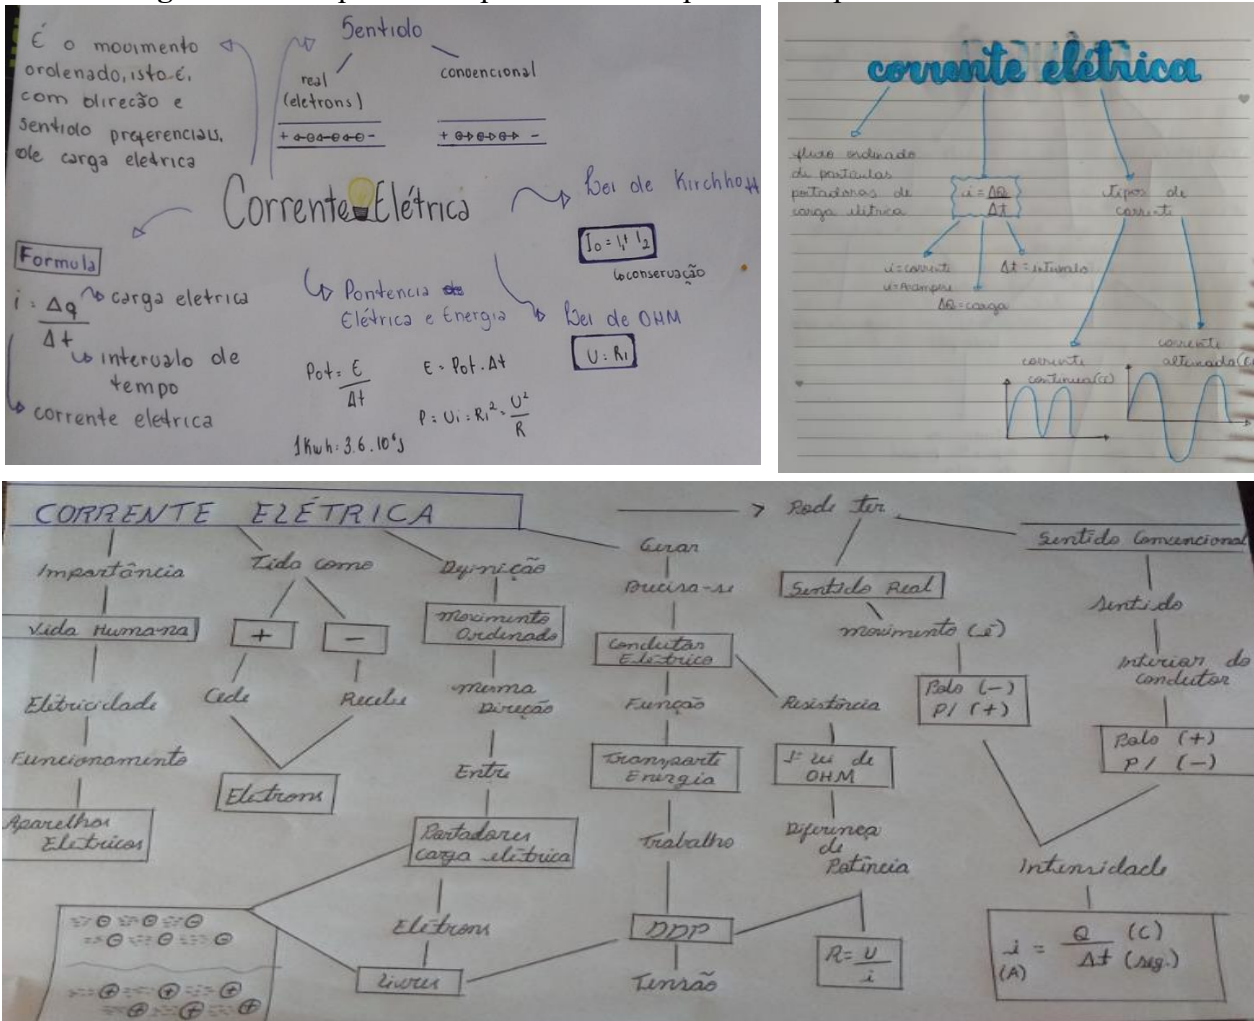 É o movimento
ordenado, isto é,
com direcão e
sentido preferenciais,
de carga eletrica
Sentido
real
(eletrons)
convencional
+ -
+ -
Corrente Elétrica
Formula
i = Δq
Δt
carga eletrica
intervalo de
tempo
corrente eletrica
Pontencia
Elétrica e Energia
Pot = E
Δt
E = Pot . Δt
P = Ui = Ri² = U²
R
1Kwh = 3,6 . 10⁶J
Lei de Kirchhoff
I₀ = I₁ + I₂
conservação
Lei de OHM
U = Ri
corrente elétrica
fluxo ordenado
de partículas
portadoras de
carga elétrica
i = ΔQ
Δt
i = corrente
Δt = intervalo
ΔQ = carga
tipos de
corrente
corrente
continua (CC)
corrente
alternada
CORRENTE ELÉTRICA
Importância
Vida Humana
Eletricidade
Funcionamento
Aparelhos
Elétricos
Tida como
+
-
Cede
Recebe
Elétrons
Definição
Movimento
Ordenado
mesma
Direção
Entre
Portadores
carga elétrica
Elétrons
Livres
Gerar
Precisa-se
Condutor
Elétrico
Função
Transporte
Energia
Trabalho
DDP
Tensão
Resistência
1ª Lei de
OHM
Diferença
de
Potência
R = U
i
Pode ter
Sentido Real
movimento (é)
Polo (-)
p/ (+)
Sentido Convencional
Sentido
Interior do
condutor
Polo (+)
p/ (-)
Intensidade
i = Q (C)
(A) Δt (seg.)